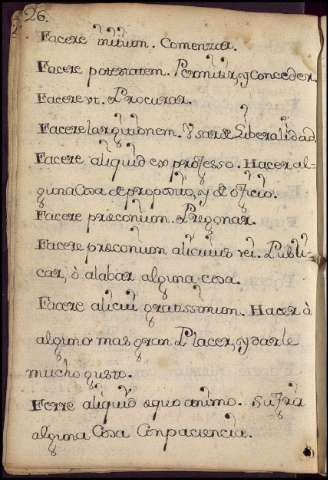 26.
Facere initium. Comenzar.
Facere potestatem. Permitir, y conceder.
Facere vt. Procurar.
Facere largitionem. Vsar de Liberalidad.
Facere aliquid ex professo. Hacer al-
guna Cosa de proposito, y de oficio.
Facere præconium. Pregonar.
Facere præconium alicuius rei. Publi-
car, ò alabar alguna cosa.
Facere alicui gratissimum. Hacer à
alguno mas gran Placer, y darle
mucho gusto.
Ferre aliquid æquo animo. Sufrir
alguna Cosa Con paciencia.